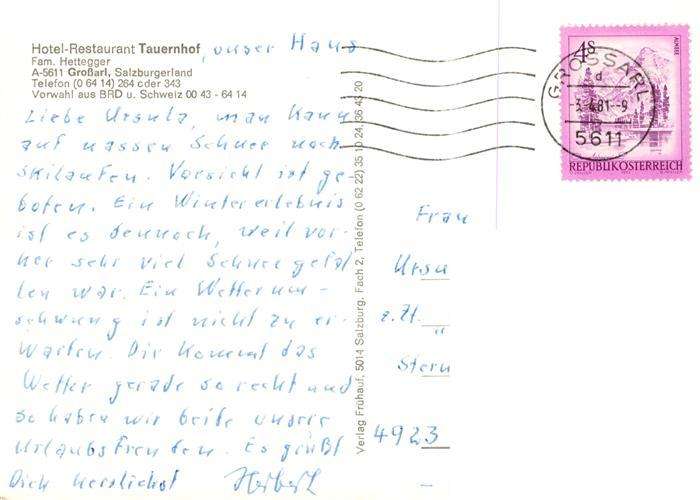 Hotel-Restaurant Tauernhof, unser Haus
Fam. Hettegger
A-5611 Großarl, Salzburgerland
Telefon (0 64 14) 264 oder 343
Vorwahl aus BRD u. Schweiz 00 43 - 64 14
Liebe Ursula, man kann
auf nassen Schnee noch
skilaufen. Vorsicht ist ge-
boten. Ein Wintererlebnis
ist es dennoch, weil vor-
her sehr viel Schnee gefal
len war. Ein Wetterum-
schwung ist nicht zu er-
warten. Dir kommt das
Wetter gerade so recht und
so haben wir beide unsere
Urlaubsfreuden. Es grüßt
Dich herzlichst Herbert
Verlag Frühauf, 5014 Salzburg, Fach 2, Telefon (0 62 22) 35 10 24, 36 43 20
Frau
Ursu
z. Zt.
Stern
4923
4S
ALMSEE
REPUBLIK ÖSTERREICH
GROSSARL
d
-3.-4.81.-9
5611